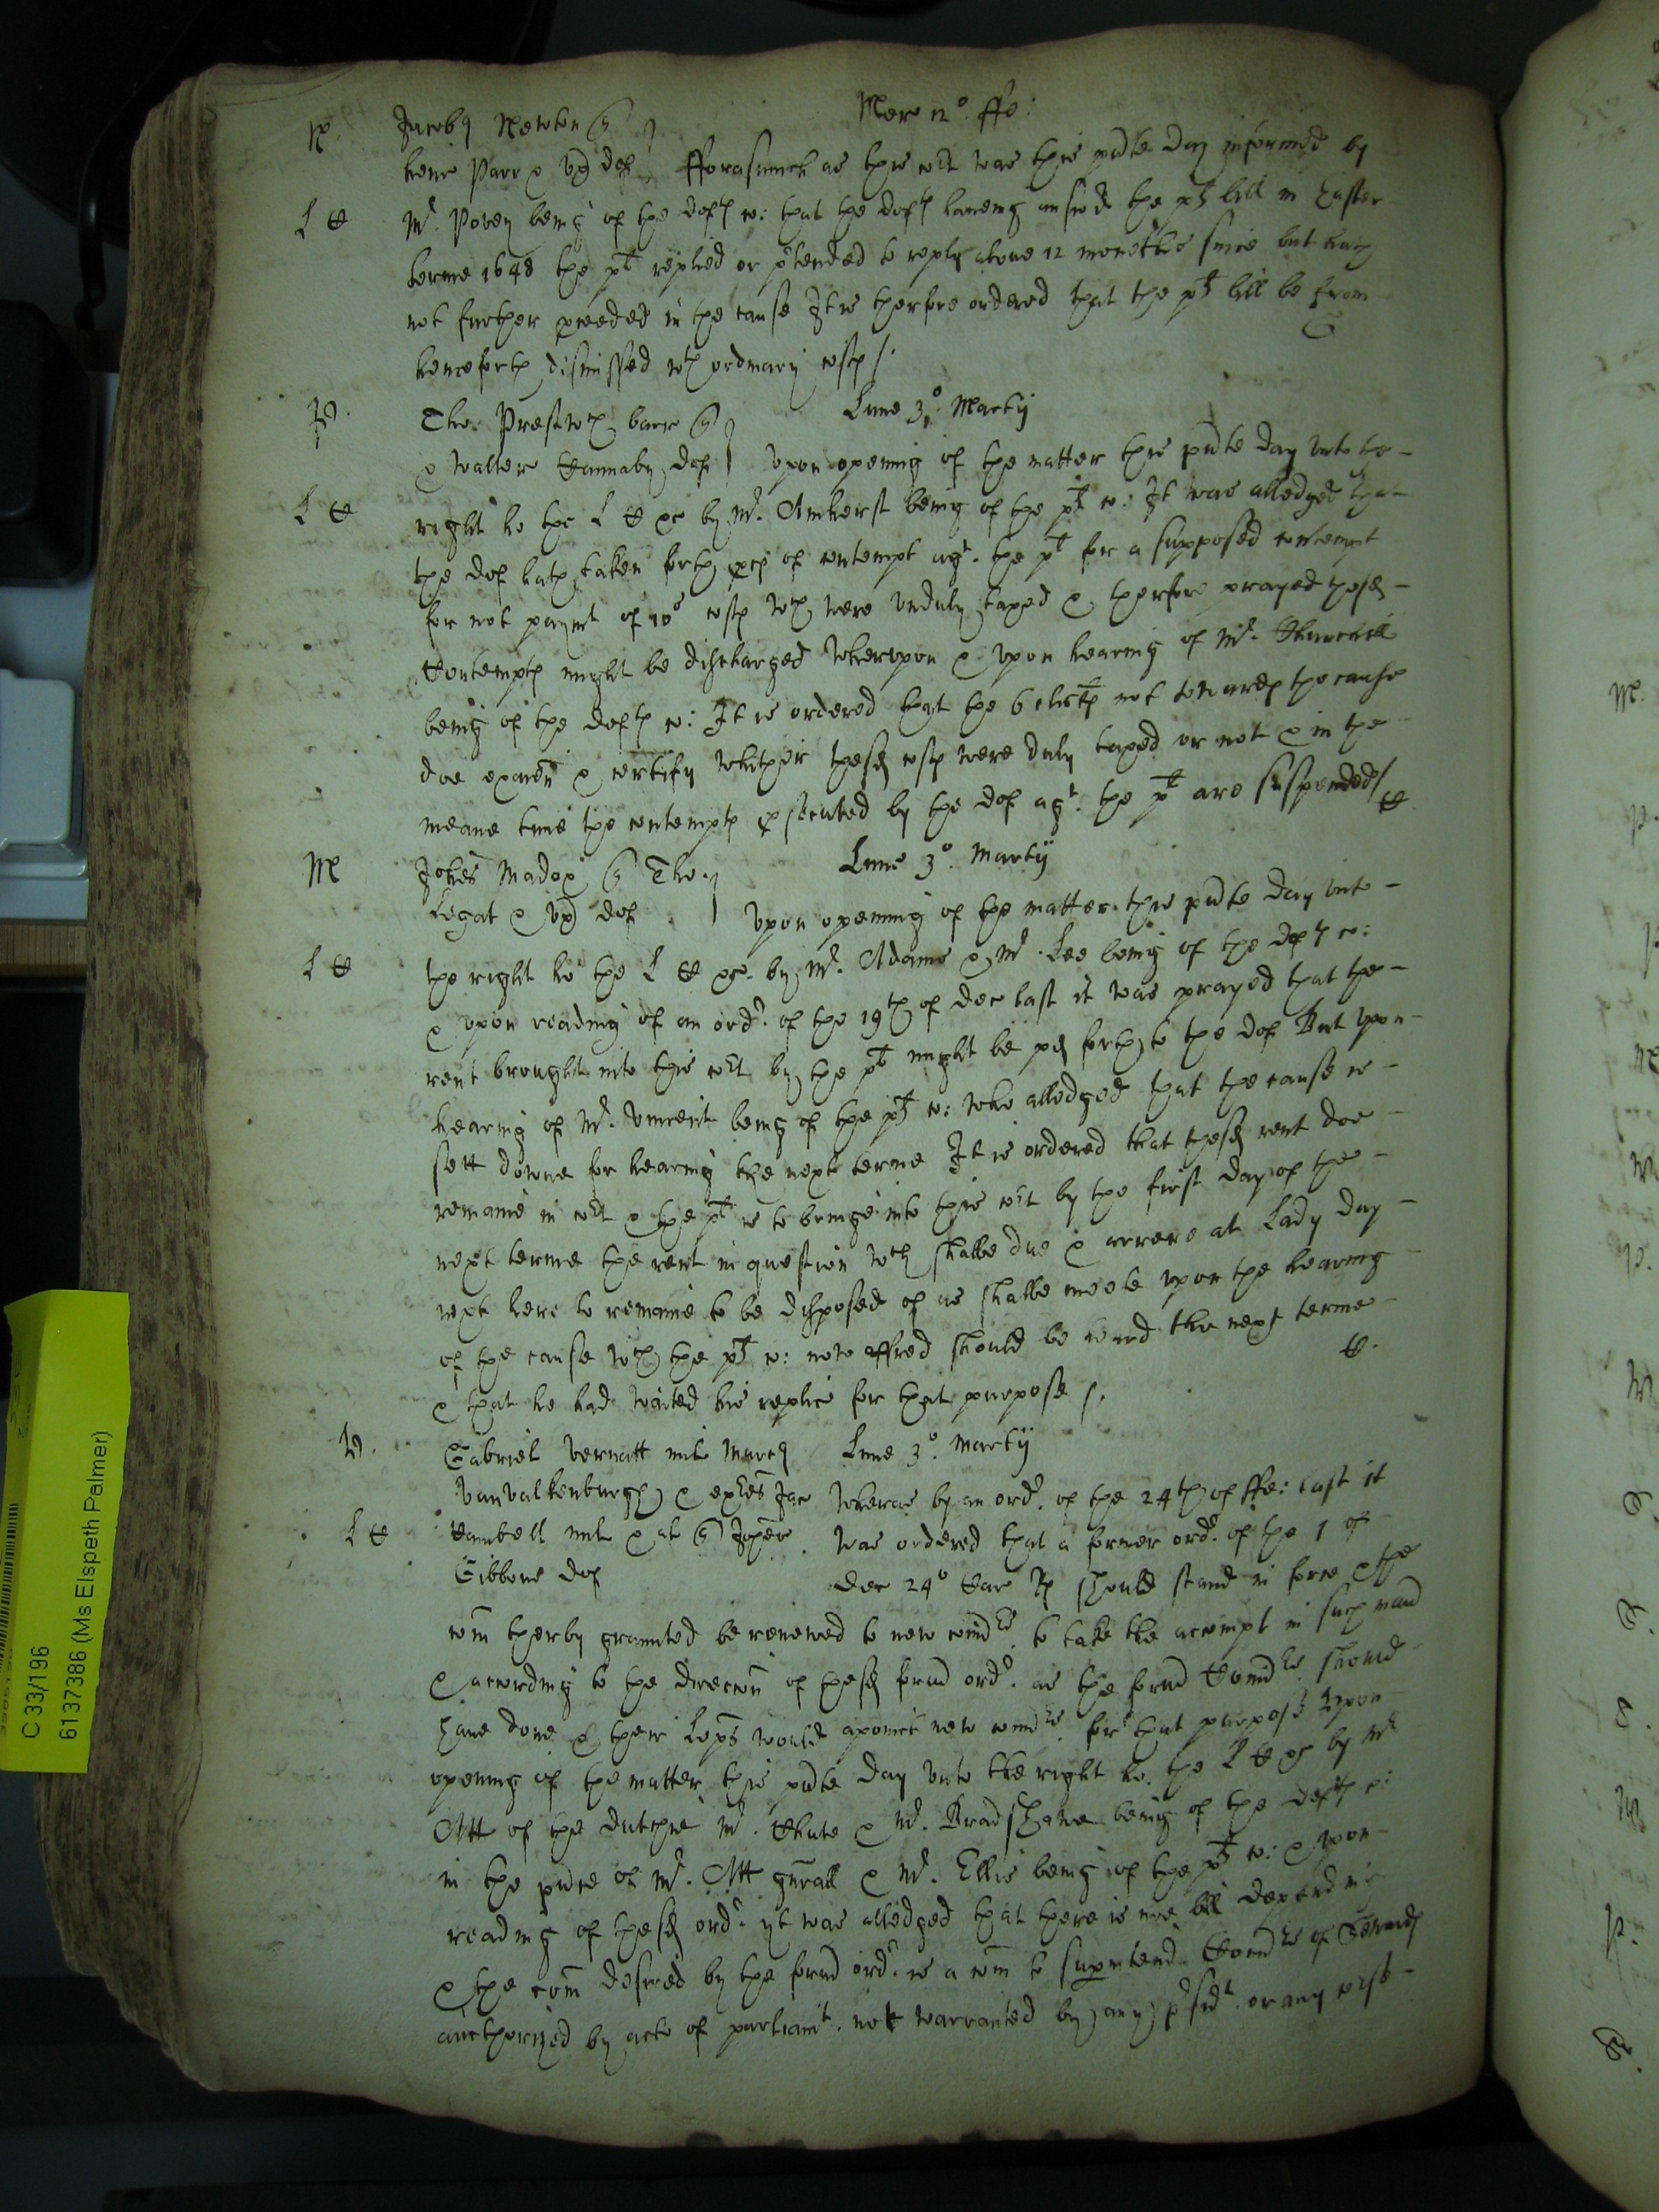 Mer 12° ffe:
N. Jacobus Newton q
henr Parr & ux def fforasmuch as this Cort was this pnte day informed by
L C Mr. Povey being of the defts co: that the defts haveing answd the pts bill in Easter
terme 1648 the pt replied or ptended to reply above 12 monethes since but hath
not further pceeded in the cause It is therfore ordered that the pts bill be from
henceforth dismissed wth ordinary costs /.
P. Tho: Prestwch barr q Lune 3°. Martij
& Walter Hannaby def Upon opening of the matter this pnte day unto the
L C right ho the L C &c by Mr. Amherst being of the pts co: It was alledged that
the def hath taken forth pces of contempt agt. the pt for a supposed contempt
for not paymt of 10s costs wch were unduly taxed & therfore prayed the sd
Contempts might be discharged Wherupon & upon hearing of Mr. Churchill
being of the defts co: It is ordered that the 6 clts not towards the cause
doe examn & certify whether the sd costs were duly taxed or not & in the
meane time the contempts psecuted by the def agt. the pt are suspended /
C
M Johes Madox q Tho. Lune 3°. Martij
Legat & ux def Upon opening of the matter this pnte day unto
L C the right ho the L C &c. by Mr. Adams & Mr. Lee being of the defts co:
& upon reading of an ordr. of the 19th of Dec last it was prayed that the
rent brought into this Cort by the pt might be pd forth to the def But upon
hearing of Mr. Vincent being of the pts co: who alledged that the cause is
sett downe for hearing the next terme It is ordered that the sd rent doe
remaine in Cort & the pt is to bringe into this Cort by the first day of the
next terme the rent in question wch shalbe due & arrere at Lady day
next here to remaine to be disposed of as shalbe meete upon the hearing
of the cause wch the pts co: now affred should be heard the next terme
& that he had waited his replic for that purpose /.
C.
V. Gabriel Vernatt mil Marcus Lune 3°. Martij
Vanvalkenburgh & exres Jac Wheras by an ordr. of the 24th of ffe: last it
L C Cambell mil & al q Johem was ordered that a former ordr. of the 1 of
Gibbons def Dec 24° Car Rs should stand in force & the
com therby graunted be renewed to new comrs. to take the accompt in such mannr
& according to the direccon of the sd formr ordr. as the formr Comrs. should
have done & their Lopps would apoint new comrs. for that purpose Upon
opening of the matter this pnte day unto the right ho. the L C &c by Mr
Att of the Dutchie Mr. Chute & Mr. Bradshawe being of the defts co:
in the pnce of Mr. Att gnrall & Mr. Ellis being of the pts co: & upon
reading of the sd ordr. yt was alledged that there is noe bill depending
& the com desired by the formr ordr. is a com to supintend Comrs of Sewers
aucthorized by acts of parliamt. not warranted by any psidt. or any course
C 33/196
6137386 (Ms Elspeth Palmer)